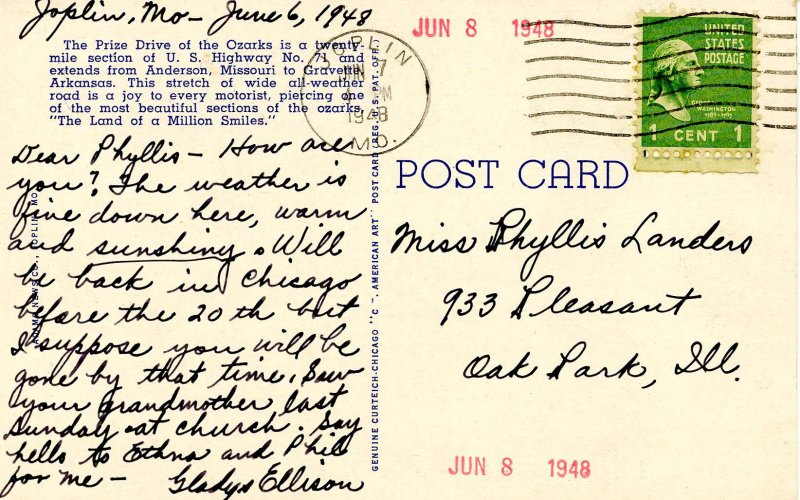 Joplin, Mo- June 6, 1948
The Prize Drive of the Ozarks is a twenty-
mile section of U. S. Highway No. 71 and
extends from Anderson, Missouri to Gravette,
Arkansas. This stretch of wide all-weather
road is a joy to every motorist, piercing one
of the most beautiful sections of the ozarks,
"The Land of a Million Smiles."
JOPLIN
JUN 7
PM
1948
MO.
JUN 8 1948
UNITED
STATES
POSTAGE
GEORGE
WASHINGTON
1789-1797
1 CENT 1
Dear Phyllis - How are
you? The weather is
fine down here, warm
and sunshiny. Will
be back in Chicago
before the 20 th but
I suppose you will be
gone by that time. Saw
your grandmother last
Sunday at church. Say
hello to Ethna and Phil
for me -
Gladys Ellison
JOPLIN, MO.
GENUINE CURTEICH-CHICAGO "C. T. AMERICAN ART" POST CARD (REG. U. S. PAT. OFF.)
POST CARD
Miss Phyllis Landers
933 Pleasant
Oak Park, Ill.
JUN 8 1948